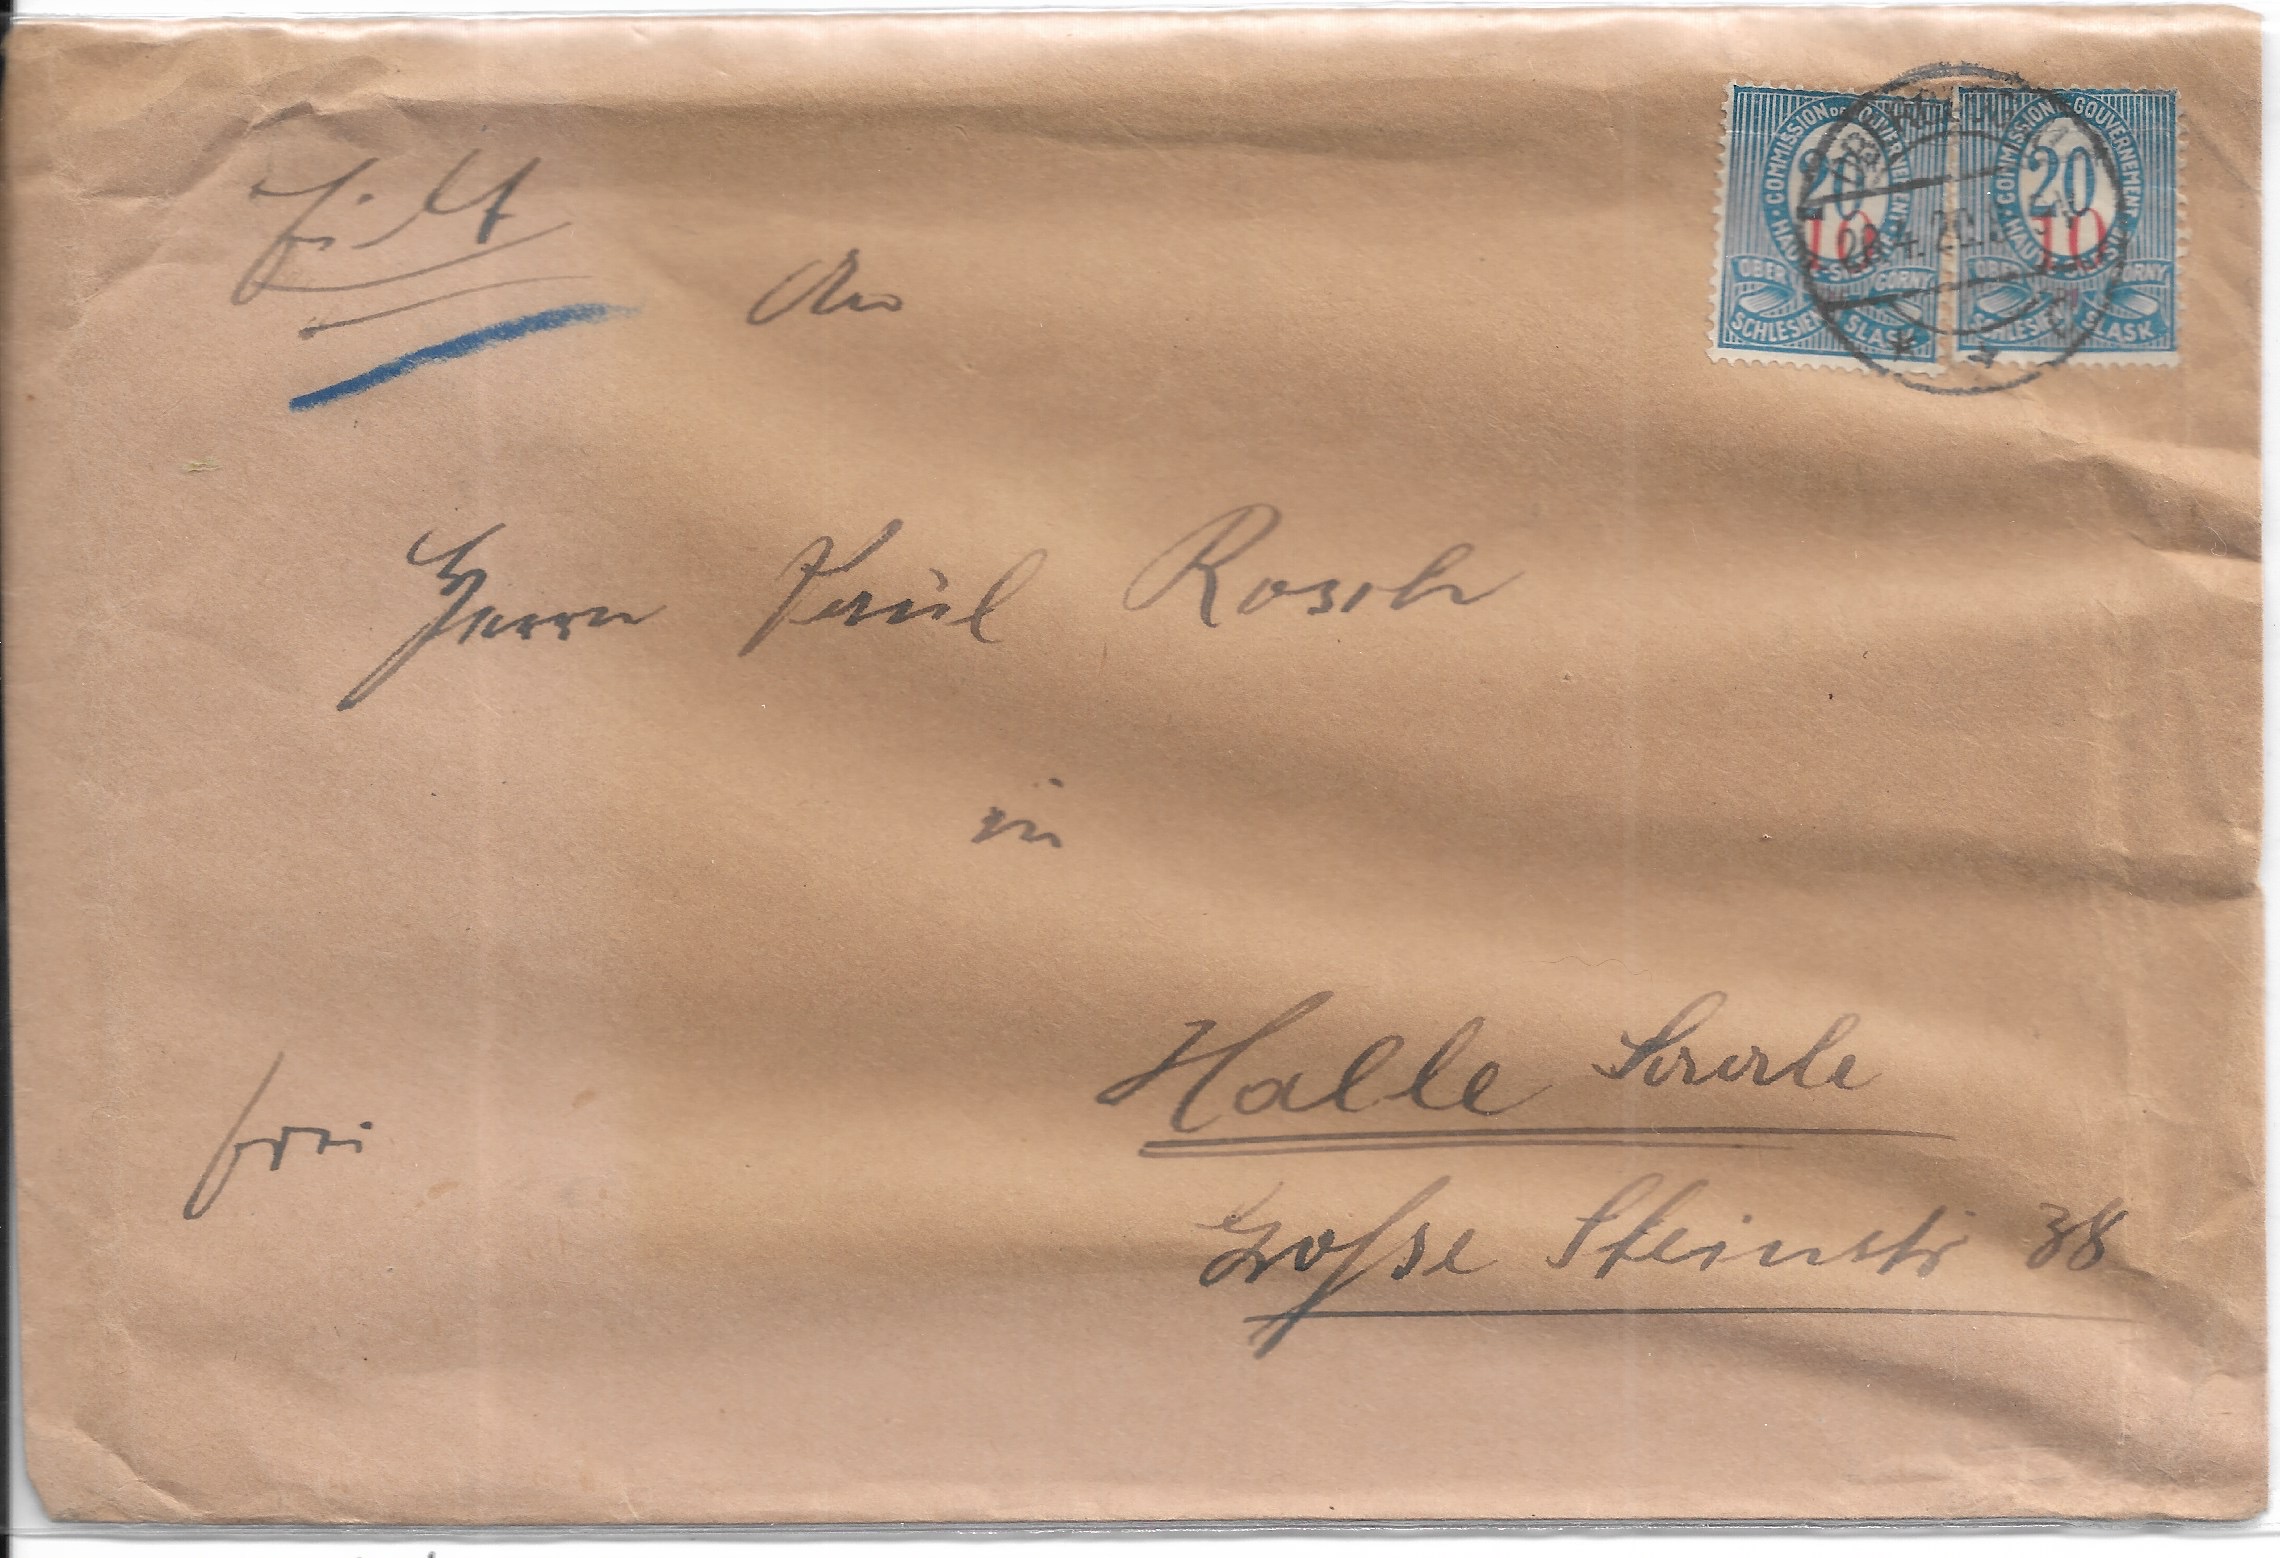 Eilt
An
Herrn Paul Rosch
in
Halle Saale
Große Steinstr 38
frei
COMMISSION DE GOUVERNEMENT
HAUTE-SILÉSIE
20
10
OBER SCHLESIEN
GÓRNY ŚLĄSK
COMMISSION DE GOUVERNEMENT
HAUTE-SILÉSIE
20
10
OBER SCHLESIEN
GÓRNY ŚLĄSK